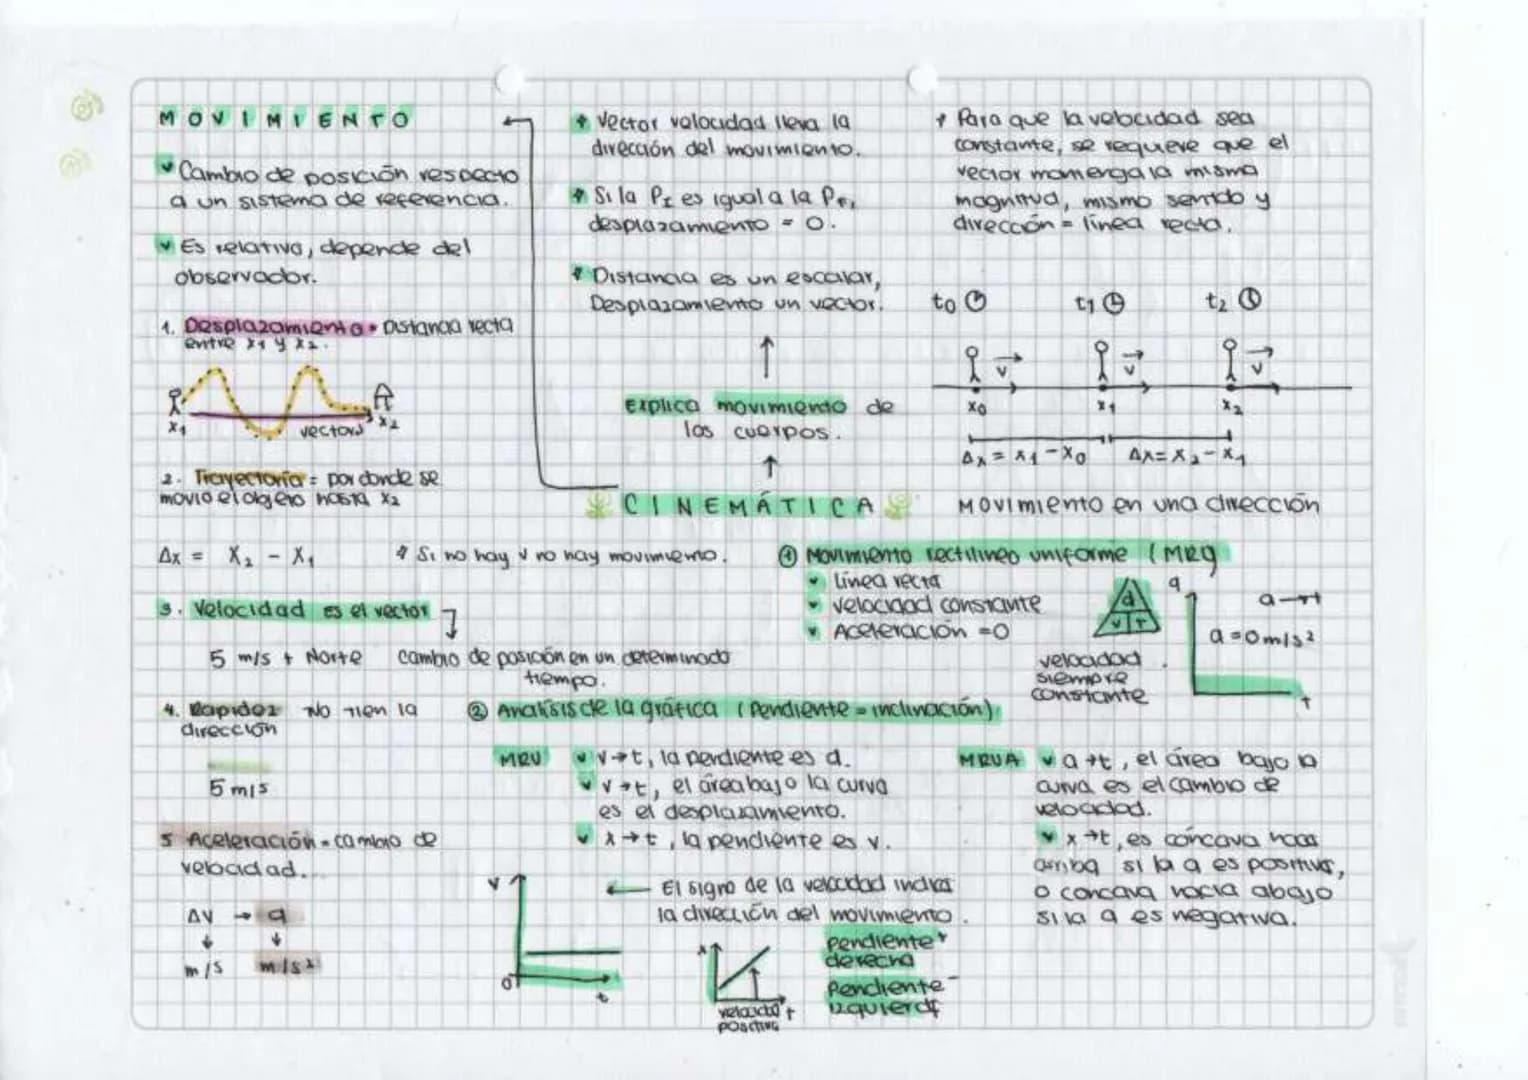 MOVIMIENTO
Cambio de posición respecto
a un sistema de referencia.
Es relativo, depende del
observador.
1. Desplazamiento = Distancia recta
entre x1 y x2.
x1
vectors
x2
2. Trayectoria = por donde se
movio el objeto hasta x2
Δx = X2 - X1
* Si no hay v no hay movimiento.
3. Velocidad es el vector
5 m/s + Norte
cambio de posición en un determinado
tiempo.
4. Rapidez No tien la
dirección
5 m/s
5 Aceleración = cambio de
velocidad...
ΔV → a
m/s
m/s²
* Vector velocidad lleva la
dirección del movimiento.
* Si la PI es igual a la PF,
desplazamiento = 0.
* Distancia es un escalar,
Desplazamiento un vector.
Explica movimiento de
los cuerpos.
CINEMÁTICA
* Para que la velocidad sea
constante, se requiere que el
vector mantenga la misma
magnitud, mismo sentido y
dirección = línea recta.
t0 t1 t2
v v v
x0 x1 x2
Δx = x1 - x0 Δx = x2 - x1
Movimiento en una dirección
① Movimiento rectilineo uniforme (MRU)
línea recta
velocidad constante
Aceleración = 0
d
v T
velocidad
siempre
constante
a
a → t
a = 0 m/s²
t
② Analisis de la gráfica (Pendiente = inclinación)
MRU
v → t, la pendiente es a.
v → t, el área bajo la curva
es el desplazamiento.
x → t, la pendiente es v.
v
0
t
← El signo de la velocidad indica
la dirección del movimiento.
x
t
velocidad
positiva
Pendiente +
derecha
Pendiente -
izquierda
MRUA
a → t, el área bajo la
curva es el cambio de
velocidad.
x → t, es cóncava hacia
arriba si la a es positiva,
o concava hacia abajo
si la a es negativa.